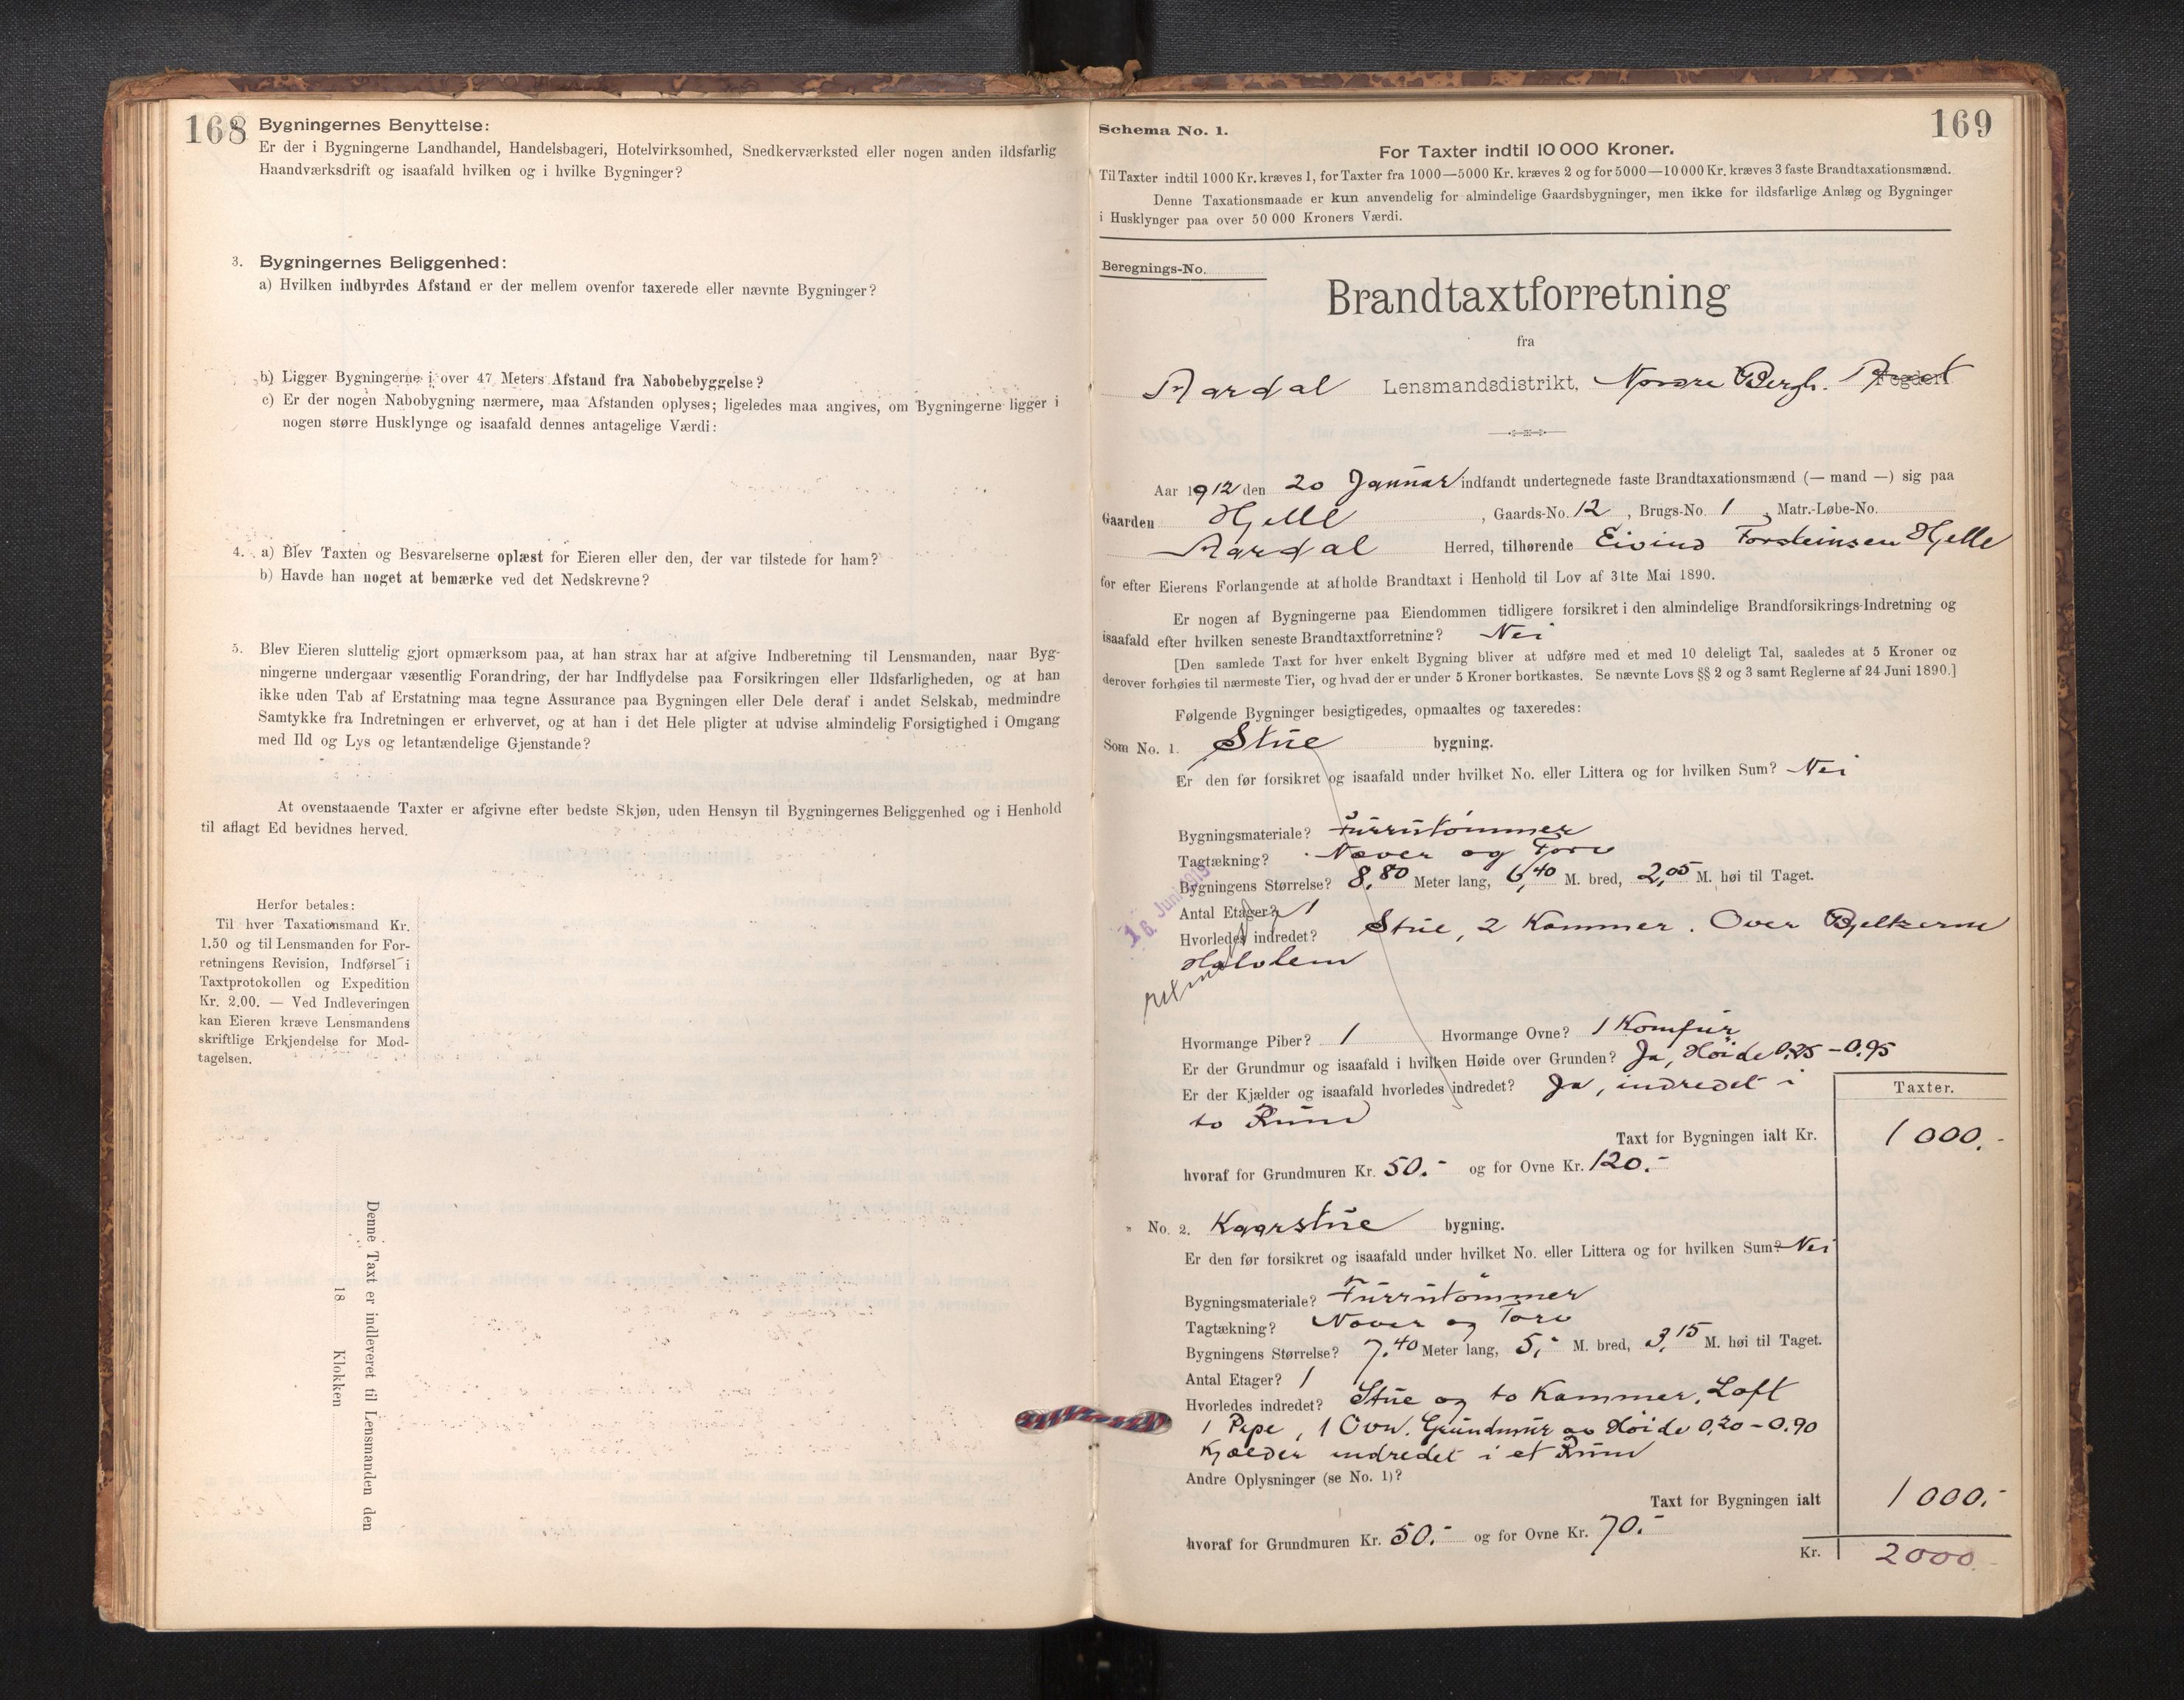 168
Bygningernes Benyttelse:
Er der i Bygningerne Landhandel, Handelsbageri, Hotelvirksomhed, Snedkerværksted eller nogen anden ildsfarlig
Haandværksdrift og isaafald hvilken og i hvilke Bygninger?
3. Bygningernes Beliggenhed:
a) Hvilken indbyrdes Afstand er der mellem ovenfor taxerede eller nævnte Bygninger?
b) Ligger Bygningerne i over 47 Meters Afstand fra Nabobebyggelse?
c) Er der nogen Nabobygning nærmere, maa Afstanden oplyses; ligeledes maa angives, om Bygningerne ligger i
nogen større Husklynge og isaafald dennes antagelige Værdi:
4. a) Blev Taxten og Besvarelserne oplæst for Eieren eller den, der var tilstede for ham?
b) Havde han noget at bemærke ved det Nedskrevne?
5. Blev Eieren sluttelig gjort opmærksom paa, at han strax har at afgive Indberetning til Lensmanden, naar Byg-
ningerne undergaar væsentlig Forandring, der har Indflydelse paa Forsikringen eller Ildsfarligheden, og at han
ikke uden Tab af Erstatning maa tegne Assurance paa Bygningen eller Dele deraf i andet Selskab, medmindre
Samtykke fra Indretningen er erhvervet, og at han i det Hele pligter at udvise almindelig Forsigtighed i Omgang
med Ild og Lys og letantændelige Gjenstande?
At ovenstaaende Taxter er afgivne efter bedste Skjøn, uden Hensyn til Bygningernes Beliggenhed og i Henhold
til aflagt Ed bevidnes herved.
Herfor betales:
Til hver Taxationsmand Kr.
1.50 og til Lensmanden for For-
retningens Revision, Indførsel i
Taxtprotokollen og Expedition
Kr. 2.00. — Ved Indleveringen
kan Eieren kræve Lensmandens
skriftlige Erkjendelse for Mod-
tagelsen.
Denne Taxt er indleveret til Lensmanden den
18 Klokken
169
Schema No. 1.
For Taxter indtil 10 000 Kroner.
Til Taxter indtil 1000 Kr. kræves 1, for Taxter fra 1000—5000 Kr. kræves 2 og for 5000—10 000 Kr. kræves 3 faste Brandtaxationsmænd.
Denne Taxationsmaade er kun anvendelig for almindelige Gaardsbygninger, men ikke for ildsfarlige Anlæg og Bygninger
i Husklynger paa over 50 000 Kroners Værdi.
Beregnings-No.
Brandtaxtforretning
fra
Aardal Lensmandsdistrikt, Nordre Bergh. Fogderi
Aar 1912 den 20 Januar indfandt undertegnede faste Brandtaxationsmænd (— mand —) sig paa
Gaarden Hjelle, Gaards-No. 12, Brugs-No. 1, Matr.-Løbe-No.
Aardal Herred, tilhørende Eivind Torsteinsen Hjelle
for efter Eierens Forlangende at afholde Brandtaxt i Henhold til Lov af 31te Mai 1890.
Er nogen af Bygningerne paa Eiendommen tidligere forsikret i den almindelige Brandforsikrings-Indretning og
isaafald efter hvilken seneste Brandtaxtforretning? Nei
[Den samlede Taxt for hver enkelt Bygning bliver at udføre med et med 10 deleligt Tal, saaledes at 5 Kroner og
derover forhøies til nærmeste Tier, og hvad der er under 5 Kroner bortkastes. Se nævnte Lovs §§ 2 og 3 samt Reglerne af 24 Juni 1890.]
Følgende Bygninger besigtigedes, opmaaltes og taxeredes:
Som No. 1. Stue bygning.
Er den før forsikret og isaafald under hvilket No. eller Littera og for hvilken Sum? Nei
Bygningsmateriale? Furrutømmer
Tagtækning? Næver og Torv
Bygningens Størrelse? 8,80 Meter lang, 6,40 M. bred, 2,05 M. høi til Taget.
Antal Etager? 1
Hvorledes indredet? Stue, 2 Kammer. Over Bjelkerne
Halvlem
Juni
Hvormange Piber? 1 Hvormange Ovne? 1 Komfur
Er der Grundmur og isaafald i hvilken Høide over Grunden? Ja, Høide 0,25 - 0.95
Er der Kjælder og isaafald hvorledes indredet? Ja, indredet i
to Rum
Taxter.
Taxt for Bygningen ialt Kr. 1000.-
hvoraf for Grundmuren Kr. 50.- og for Ovne Kr. 120.-
" No. 2. Kaarstue bygning.
Er den før forsikret og isaafald under hvilket No. eller Littera og for hvilken Sum? Nei
Bygningsmateriale? Furrutømmer
Tagtækning? Næver og Torv
Bygningens Størrelse? 7.40 Meter lang, 5,- M. bred, 3,15 M. høi til Taget.
Antal Etager? 1
Hvorledes indredet? Stue og to Kammer, Loft
1 Pipe, 1 Ovn. Grundmur av Høide 0,20 - 0.90
Kjælder indredet i et Rum
Andre Oplysninger (se No. 1)?
Taxt for Bygningen ialt 1000.-
hvoraf for Grundmuren Kr. 50.- og for Ovne Kr. 70.-
Kr. 2000.-